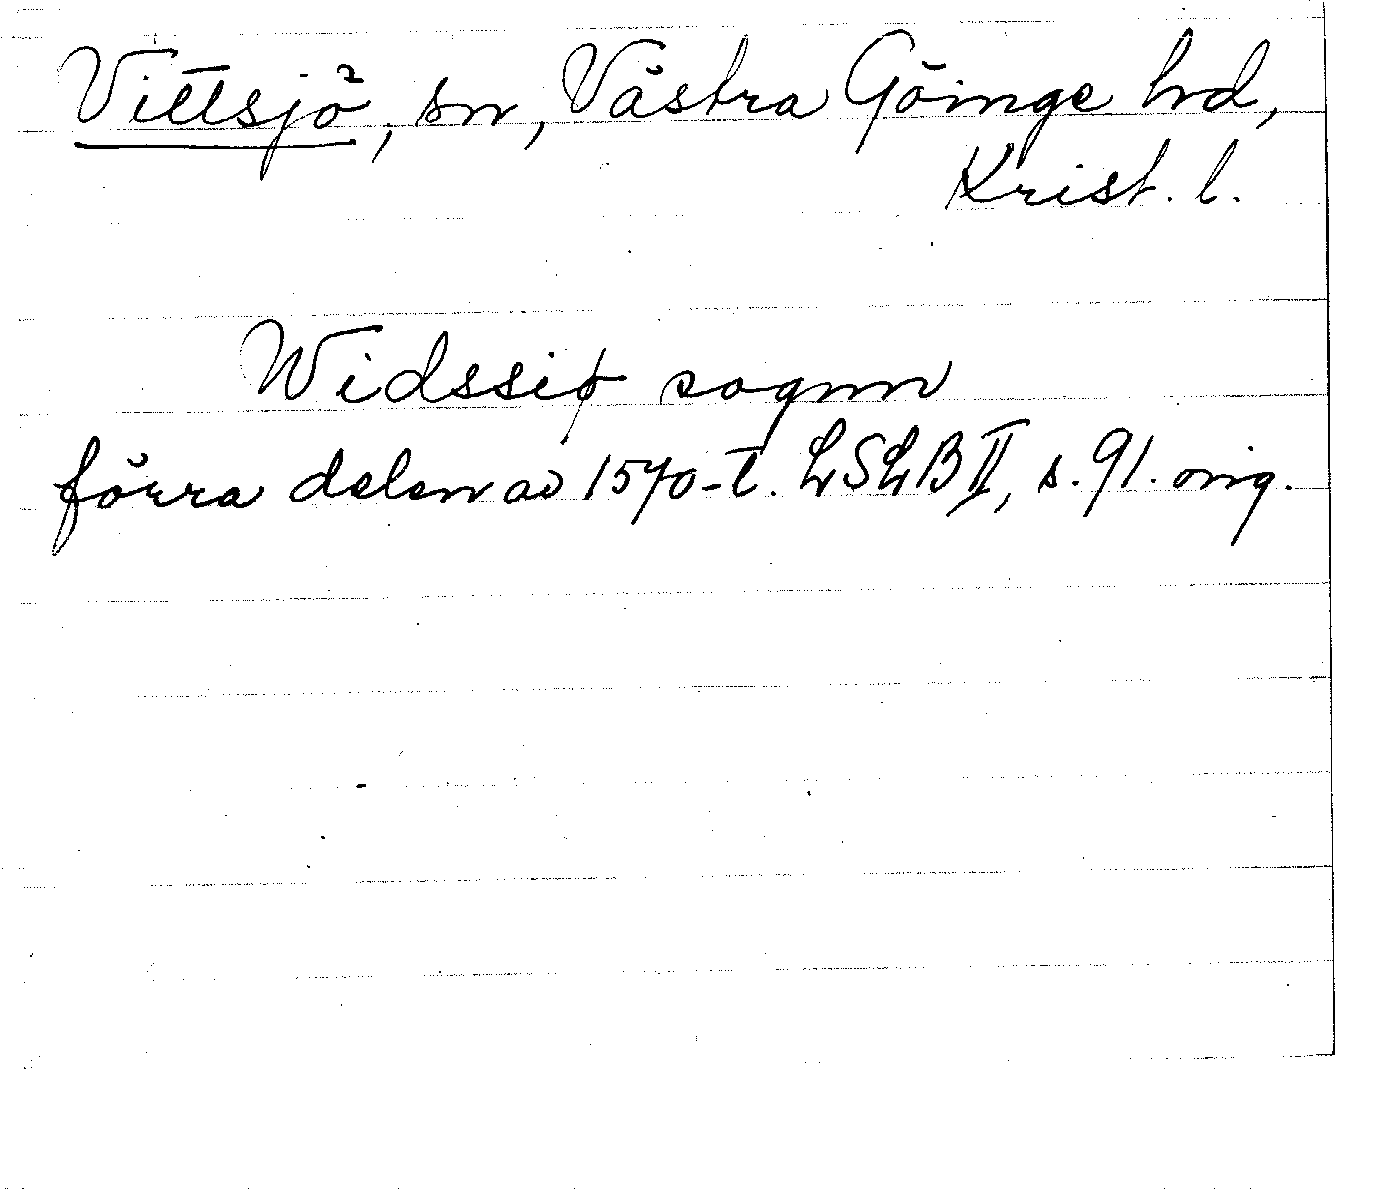 Vittsjö, sn, Västra Göinge hd,
Krist. l.
Widssiø sognn
förra delen av 1570-t. LSLB II, s. 91. orig.